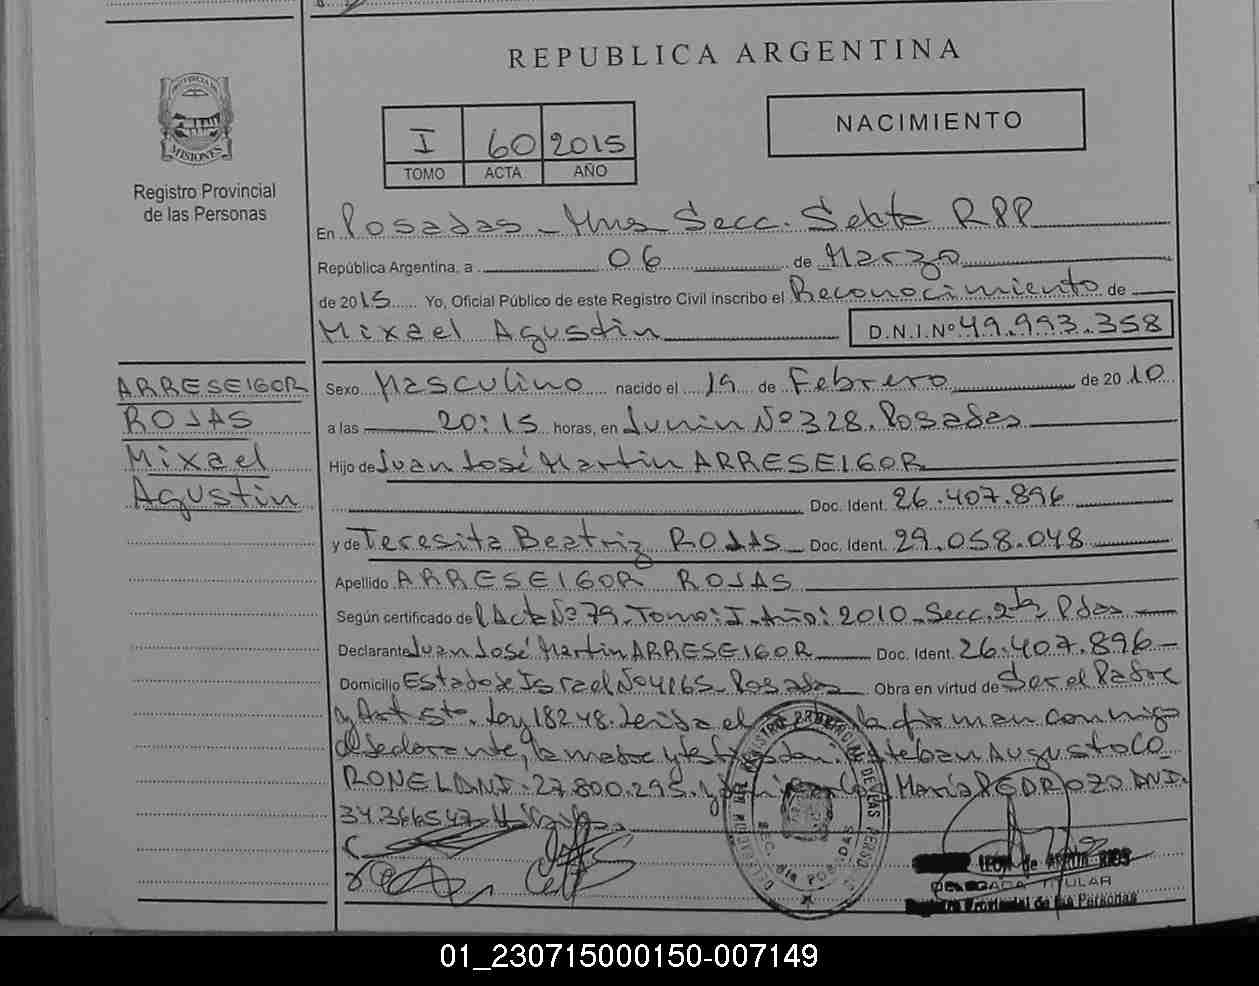 REPUBLICA ARGENTINA
PROVINCIA DE
MISIONES
Registro Provincial
de las Personas
I 60 2015
TOMO ACTA AÑO
NACIMIENTO
En Posadas - Mnes Secc. Sexta RPP
República Argentina, a 06 de Marzo
de 2015 Yo, Oficial Público de este Registro Civil inscribo el Reconocimiento de
Mixael Agustin D.N.I.Nº 49.993.358
ARRESEIGOR
ROJAS
Mixael
Agustin
Sexo Masculino nacido el 19 de Febrero de 2010
a las 20:15 horas, en Junin Nº 328. Posadas
Hijo de Juan José Martin ARRESEIGOR
Doc. Ident. 26.407.896
y de Teresita Beatriz ROJAS Doc. Ident. 29.058.048
Apellido ARRESEIGOR ROJAS
Según certificado del Acta Nº 79. Tomo: I. Año: 2010. Secc. 2ta Pdas
Declarante Juan José Martin ARRESEIGOR Doc. Ident. 26.407.896
Domicilio Estado de Israel Nº 4165. Posadas Obra en virtud de Ser el Padre
y Art 5to. Ley 18248. Leida el la firman conmigo
el declarante, la madre y Esteban Augusto CO
RONEL DNI: 27.800.295. y María PEDROZO DNI.
34.366547.
SEC. 6ta POSADAS
LEON de RIOS
DELEGADA TITULAR
Registro Provincial de las Personas
01_230715000150-007149